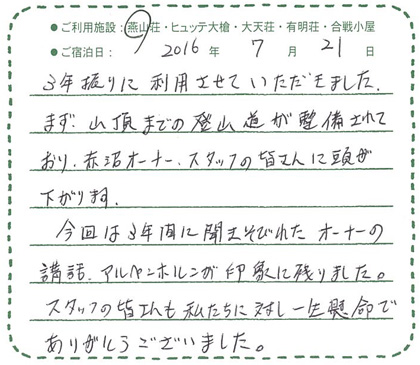 ●ご利用施設:燕山荘・ヒュッテ大槍・大天荘・有明荘・合戦小屋
●ご宿泊日: 2016 年 7 月 21 日
3年振りに利用させていただきました.
まず、山頂までの登山道が整備されて
おり、赤沼オーナー、スタッフの皆さんに頭が
下がります.
今回は3年間に聞きそびれたオーナーの
講話、アルペンホルンが印象に残りました。
スタッフの皆さんも私たちに対し一生懸命で
ありがとうございました。